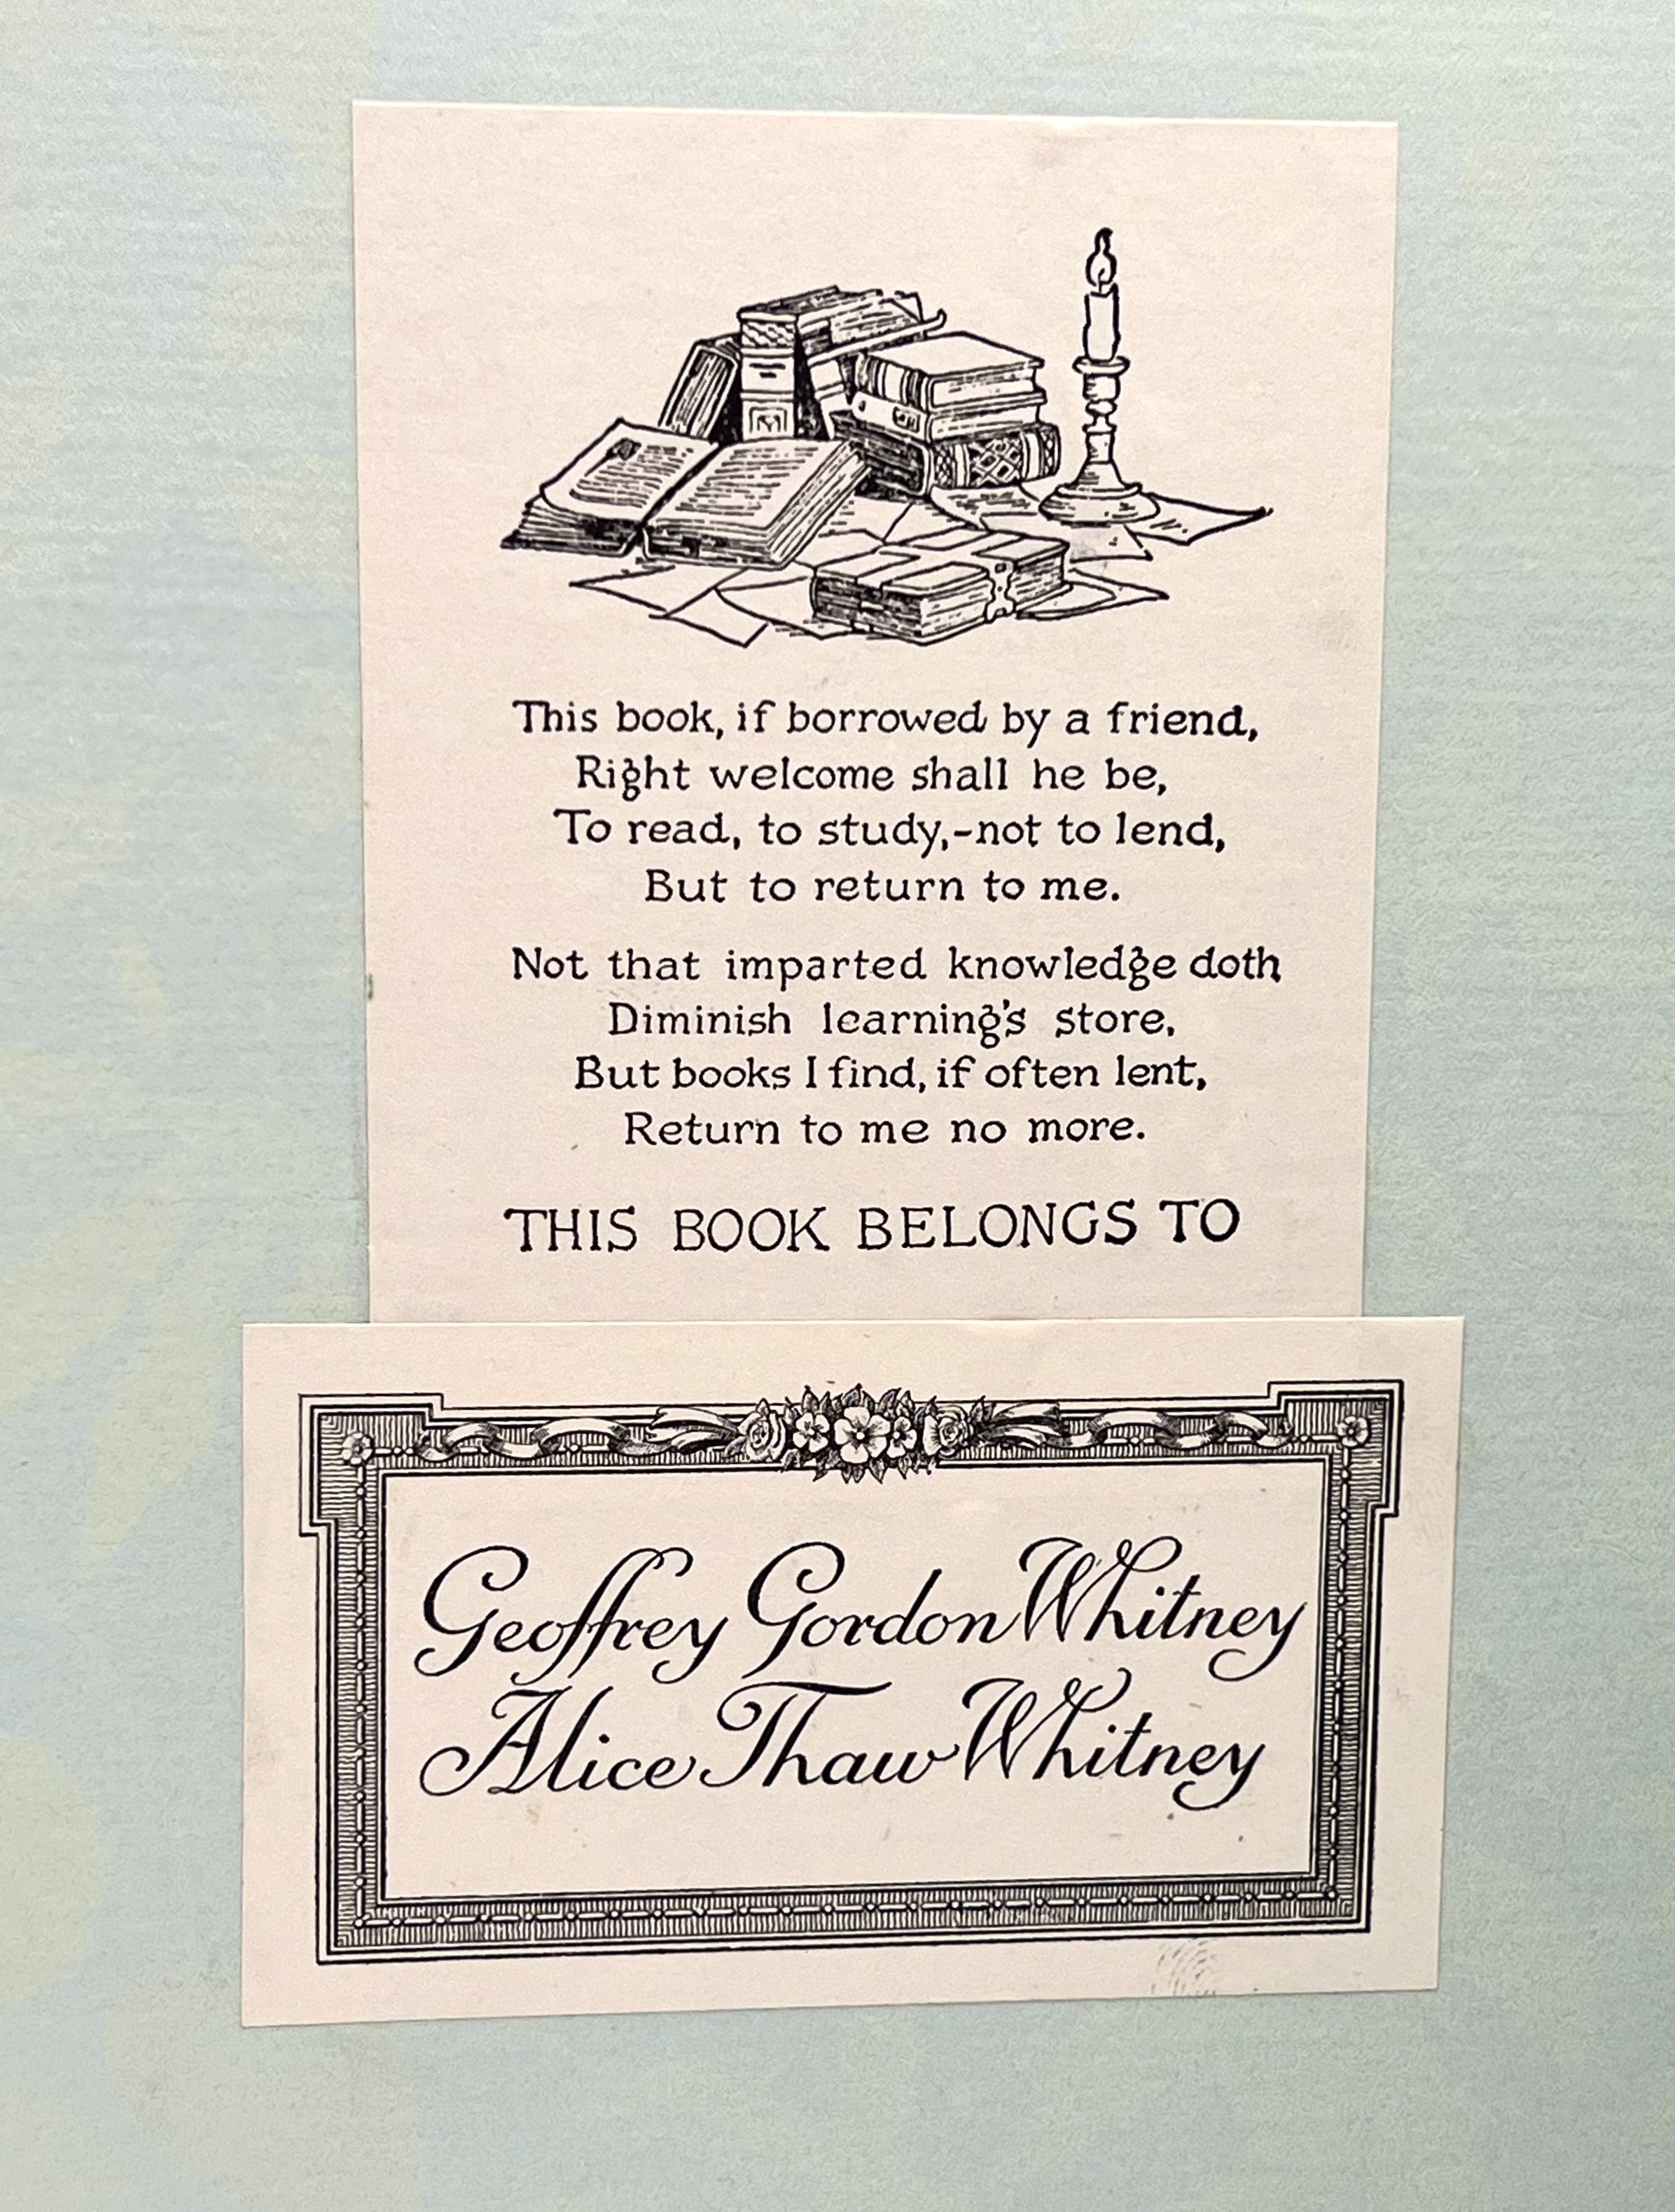 This book, if borrowed by a friend,
Right welcome shall he be,
To read, to study,-not to lend,
But to return to me.
Not that imparted knowledge doth
Diminish learning's store,
But books I find, if often lent,
Return to me no more.
THIS BOOK BELONGS TO
Geoffrey Gordon Whitney
Alice Thaw Whitney